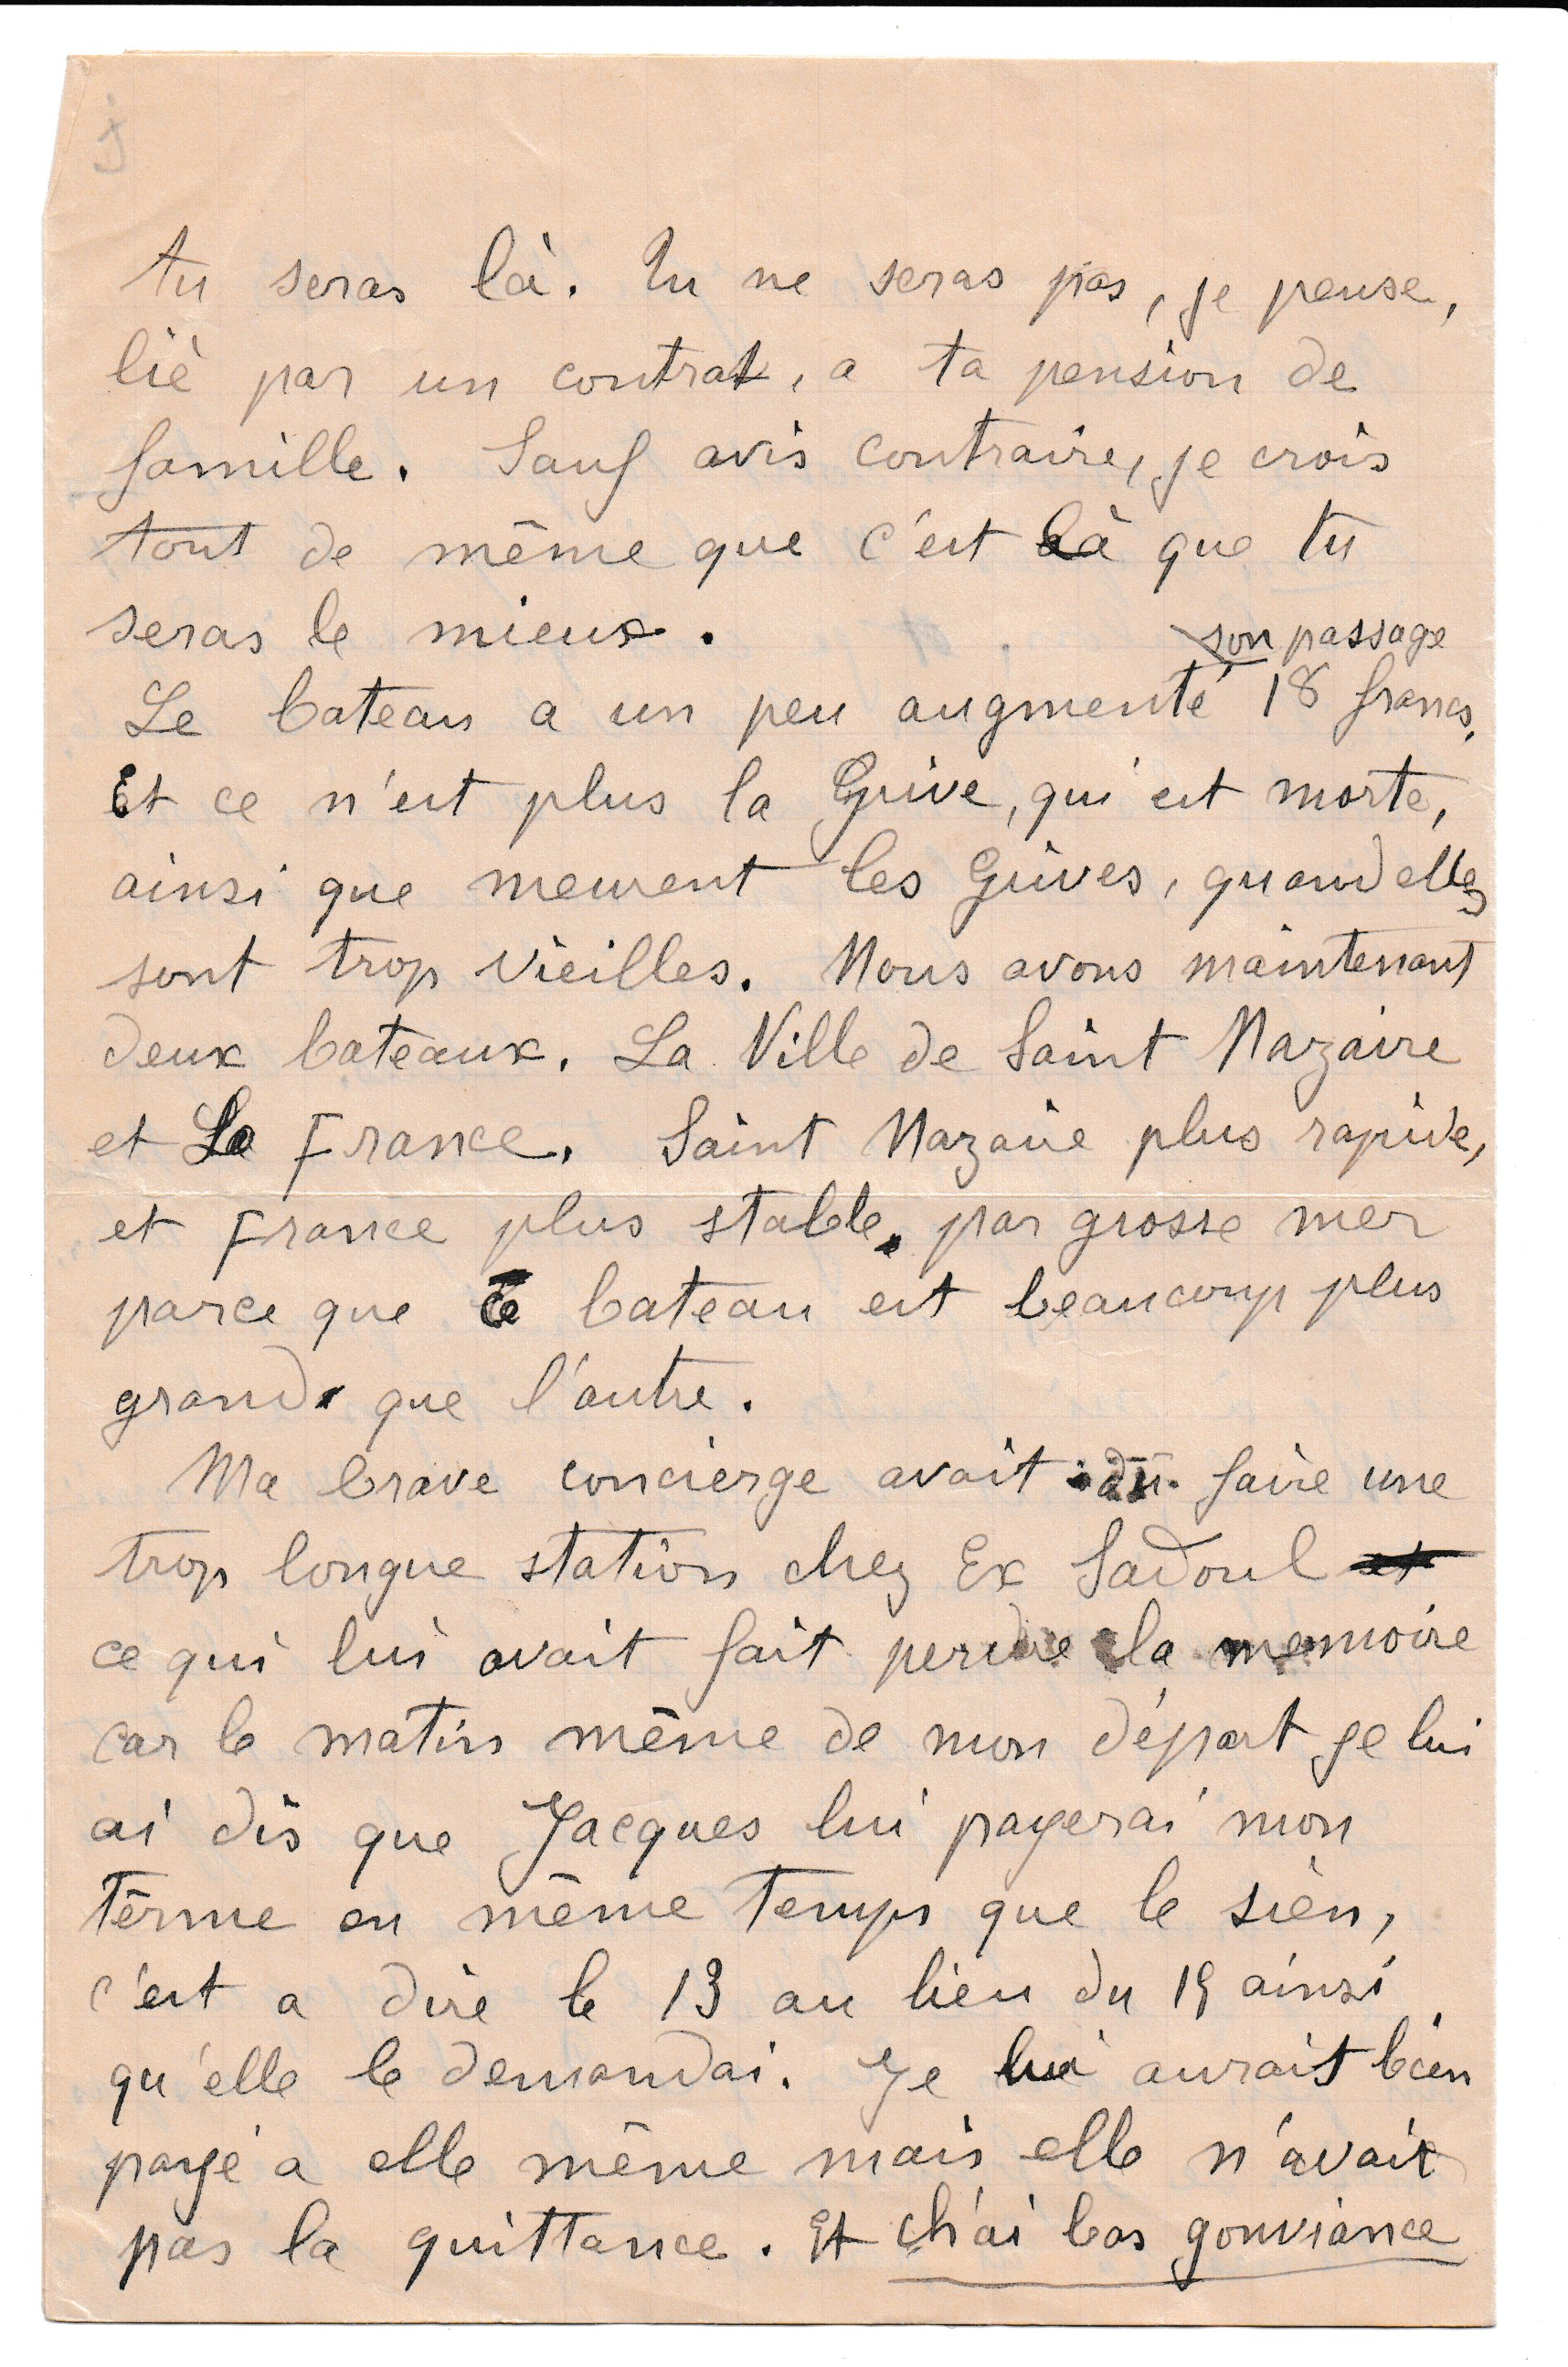 tu seras là. Tu ne seras pas, je pense,
lié par un contrat, a ta pension de
famille. Sauf avis contraire, je crois
tout de même que c'est là que tu
seras le mieux.
son passage
Le bateau a un peu augmenté 18 francs.
Et ce n'est plus la Grive, qui est morte,
ainsi que meurent les Grives, quand elles
sont trop vieilles. Nous avons maintenant
deux bateaux. La Ville de Saint Nazaire
et La France. Saint Nazaire plus rapide,
et France plus stable, par grosse mer
parce que ce bateau est beaucoup plus
grand que l'autre.
Ma brave concierge avait dû faire une
trop longue station chez Ex Sadoul
ce qui lui avait fait perdre la memoire
car le matin même de mon départ je lui
ai dis que Jacques lui payerai mon
terme en même temps que le sien,
c'est a dire le 13 au lieu du 19 ainsi
qu'elle le demandai. Je lui aurais bien
payé a elle même mais elle n'avait
pas la quittance. Et ch'ai bas gonviance